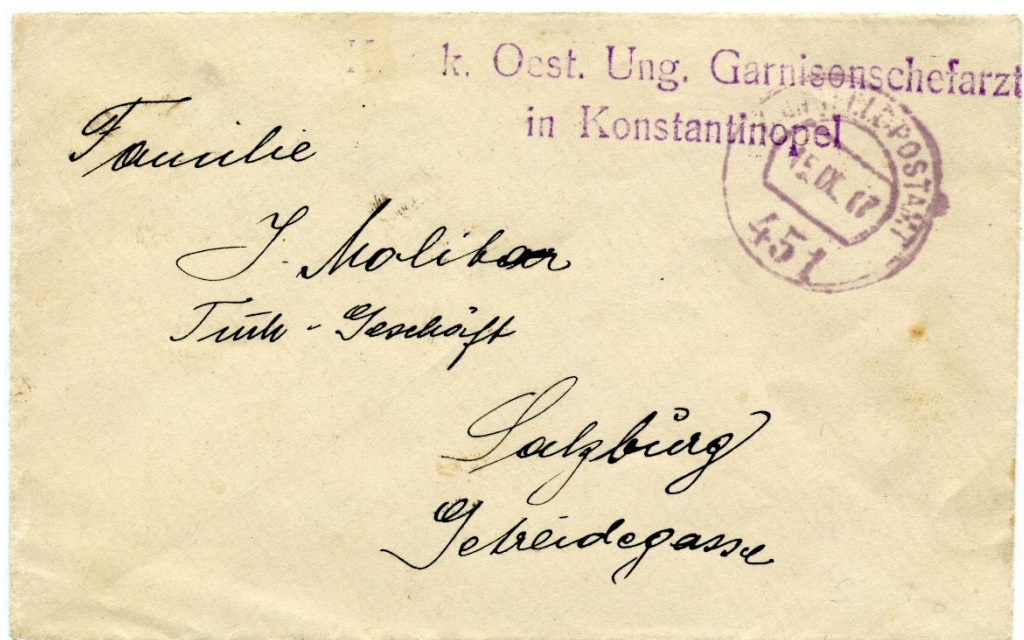 K. k. Oest. Ung. Garnisonschefarzt
in Konstantinopel
FELDPOSTAMT
15.IX.17
451
Familie
J. Molitor
Tuch-Geschäft
Salzburg
Getreidegasse